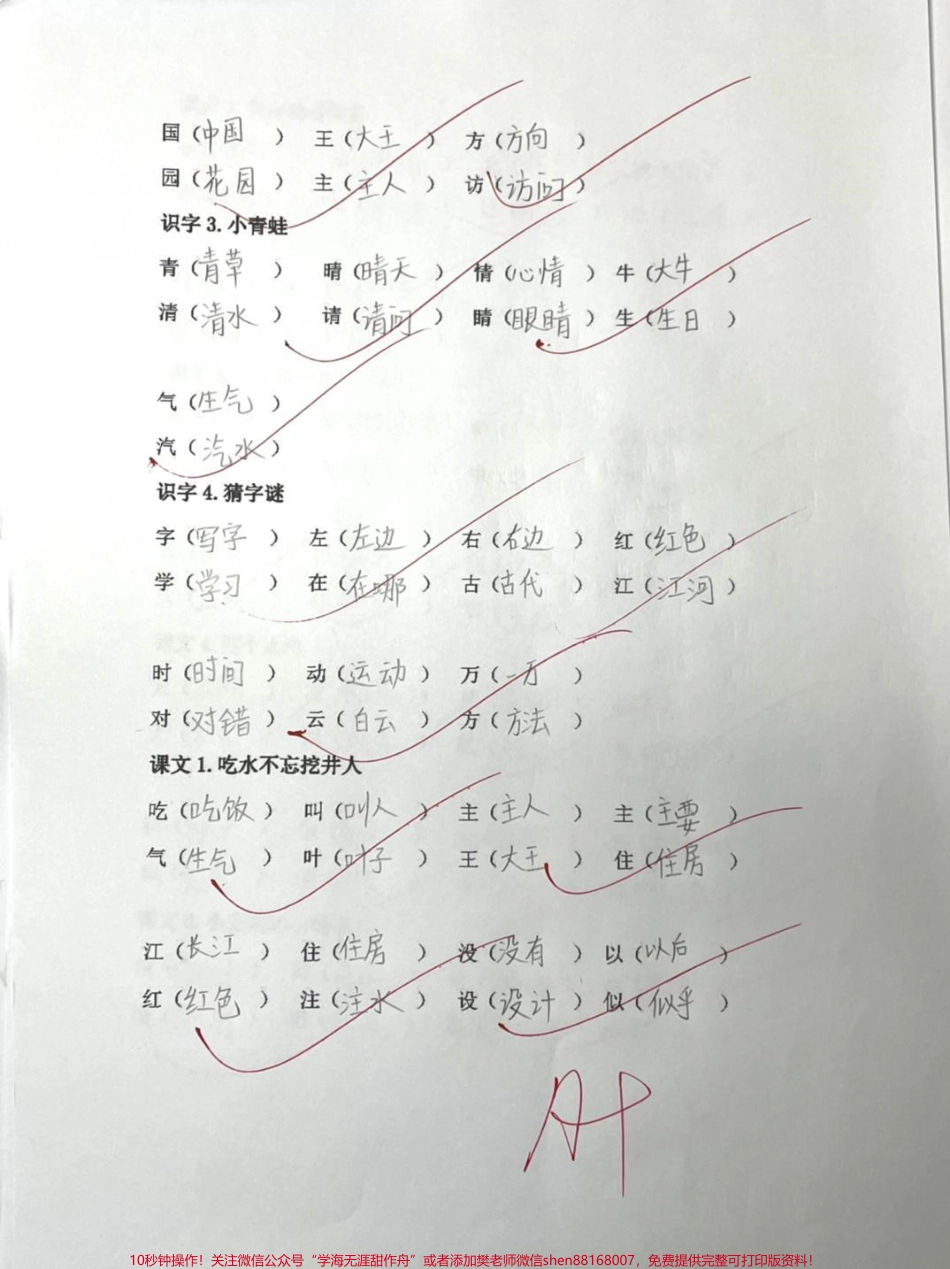 国（中国）王（大王）方（方向）
园（花园）主（主人）访（访问）
识字 3. 小青蛙
青（青草）晴（晴天）情（心情）牛（大牛）
清（清水）请（请问）睛（眼睛）生（生日）
气（生气）
汽（汽水）
识字 4. 猜字谜
字（写字）左（左边）右（右边）红（红色）
学（学习）在（在哪）古（古代）江（江河）
时（时间）动（运动）万（一万）
对（对错）云（白云）方（方法）
课文 1. 吃水不忘挖井人
吃（吃饭）叫（叫人）主（主人）主（主要）
气（生气）叶（叶子）王（大王）住（住房）
江（长江）住（住房）没（没有）以（以后）
红（红色）注（注水）设（设计）似（似乎）
A+
10秒钟操作！关注微信公众号“学海无涯甜作舟”或者添加樊老师微信shen88168007，免费提供完整可打印版资料！